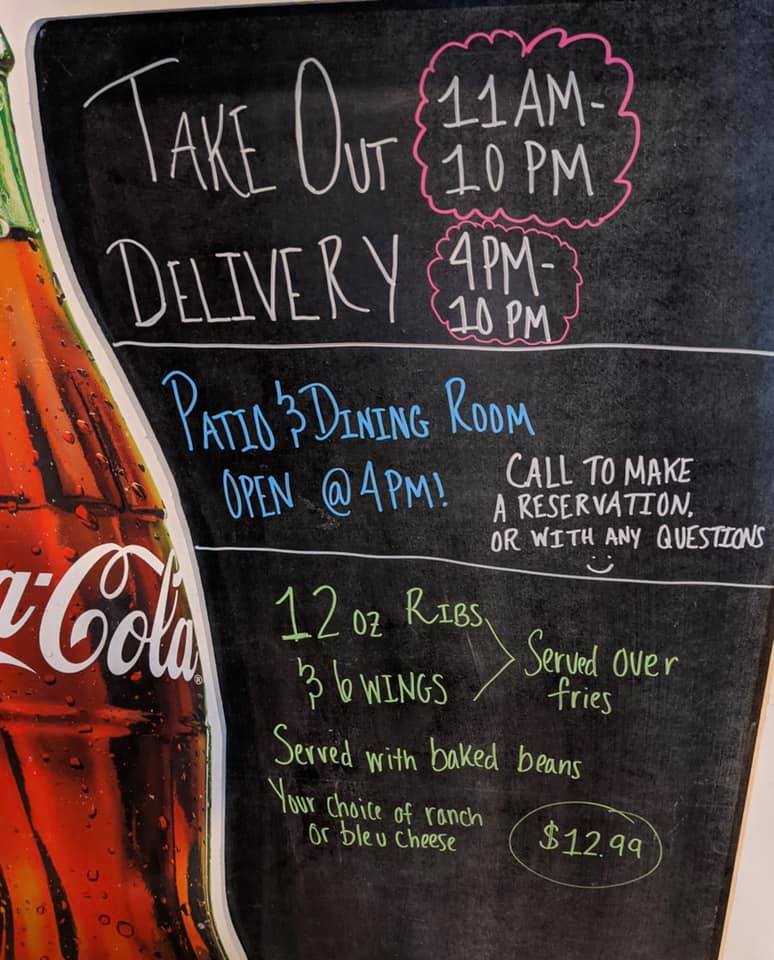 TAKE OUT 11 AM-
10 PM
DELIVERY 4 PM-
10 PM
PATIO & DINING ROOM
OPEN @ 4 PM!
CALL TO MAKE
A RESERVATION,
OR WITH ANY QUESTIONS
a-Cola®
12 oz RIBS
& 6 WINGS
Served over
fries
Served with baked beans
Your choice of ranch
or bleu cheese
$12.99